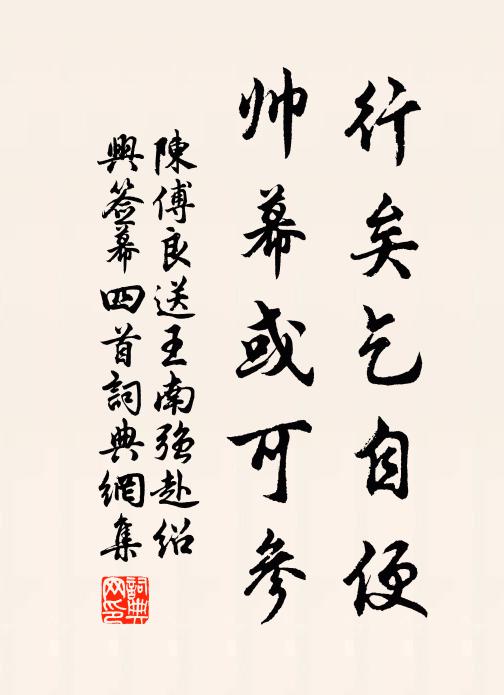 行矣乞自便
帅幕或可參
陳傅良送王南强赴绍
興签幕四首詞典網集